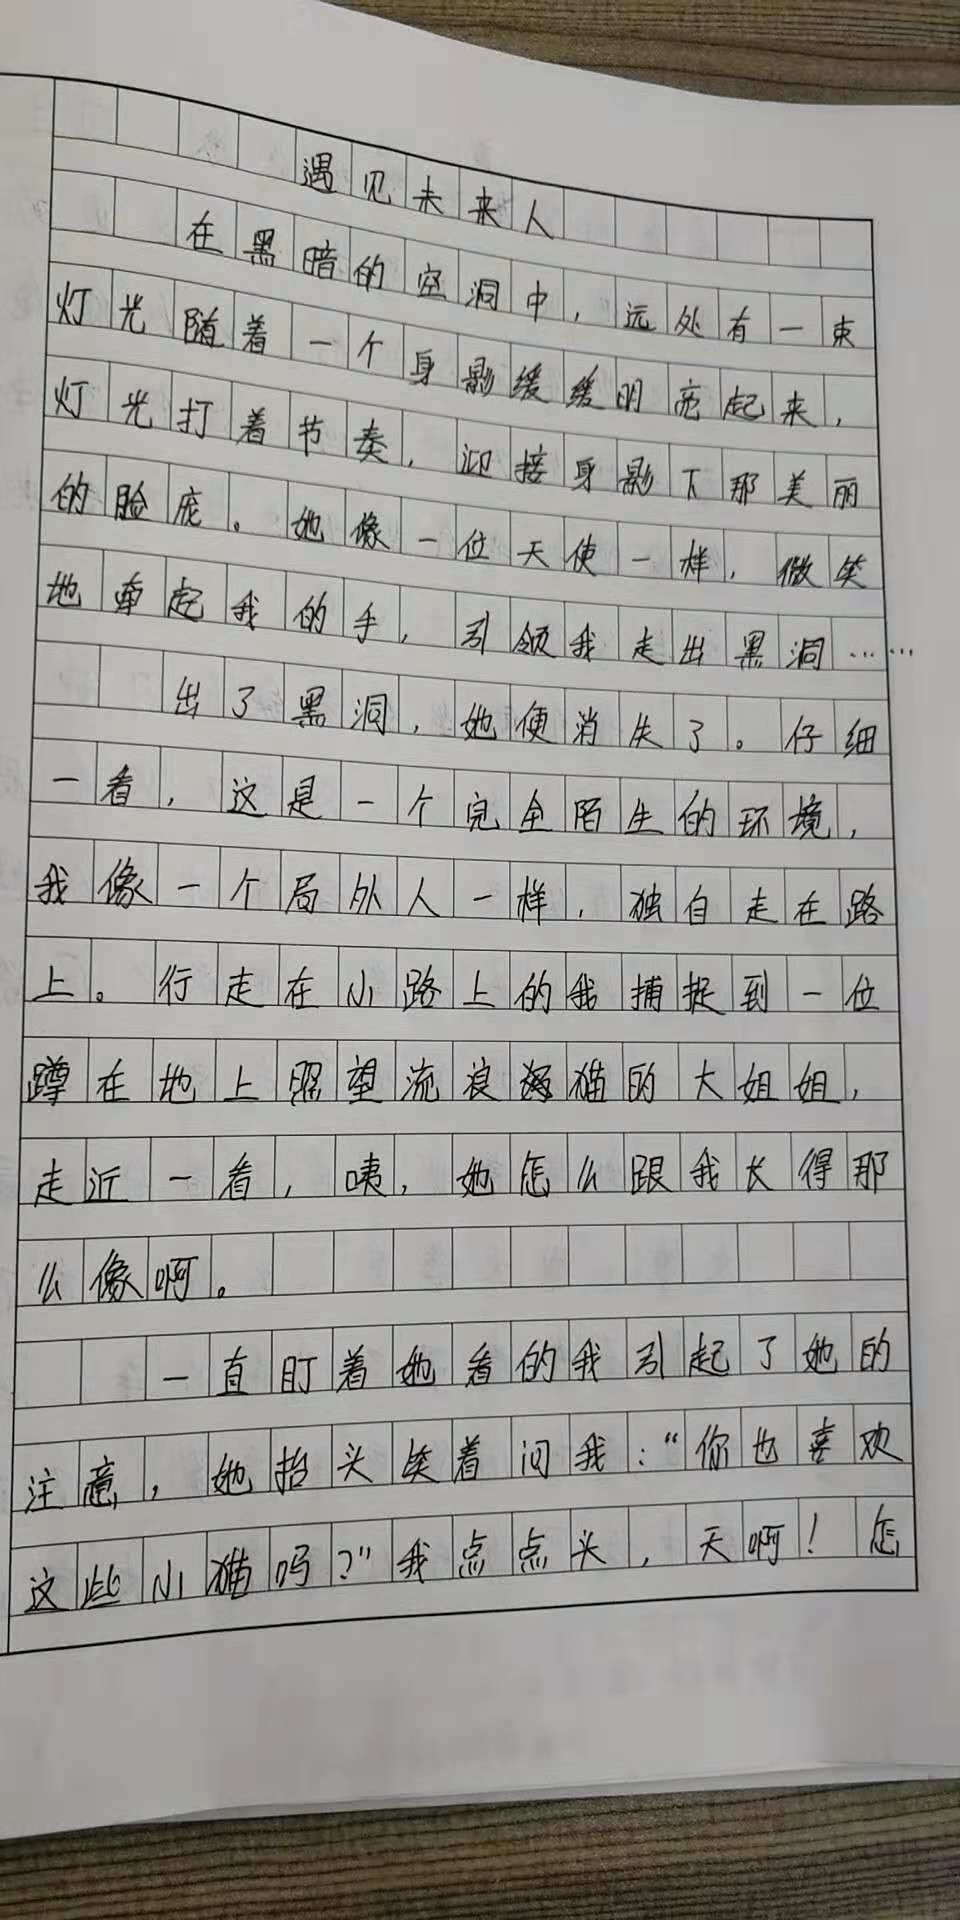 遇见未来人
在黑暗的空洞中，远处有一束
灯光随着一个身影缓缓明亮起来，
灯光打着节奏，迎接身影下那美丽
的脸庞。她像一位天使一样，微笑
地牵起我的手，引领我走出黑洞……
出了黑洞，她便消失了。仔细
一看，这是一个完全陌生的环境，
我像一个局外人一样，独自走在路
上。行走在小路上的我捕捉到一位
蹲在地上照望流浪猫的大姐姐，
走近一看，咦，她怎么跟我长得那
么像啊。
一直盯着她看的我引起了她的
注意，她抬头笑着问我：“你也喜欢
这些小猫吗？”我点点头，天啊！怎